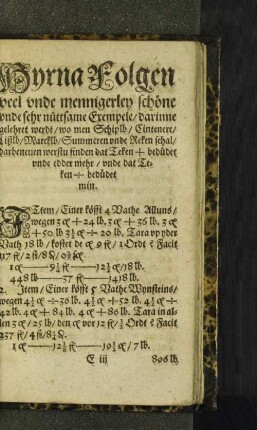 Hyrna Folgen
veel vnde mennigerley schöne
vnde sehr nüttsame Exempele / darinne
gelehret werdt / wo men Schiplb / Cintenere /
Lißlb / Marcklb / Summeren vnde Reken schal /
darbeneuen werstu finden dat Teken + bedüdet
vnde edder mehr / vnde dat Te-
ken ÷ bedüdet
min.
ITem / Einer köfft 4 Vathe Alluns /
wegen 3 + 24 lb. 3 + 36 lb. 3
+ 50 lb 3½ ÷ 20 lb. Tara vp yder
Vath 18 lb / kostet de 9 / 1 Ordt Facit
448 lb — 37 — 1418 lb.
2. Item / Einer köfft 5 Vathe Wynsteins /
wegen 4½ ÷ 36 lb. 4½ + 52 lb. 4½ ÷
42 lb. 4 + 84 lb. 4 + 86 lb. Tara in al-
len 3 / 25 lb / den vor 12 / ½ Ordt Facit
E iij 896 lb.